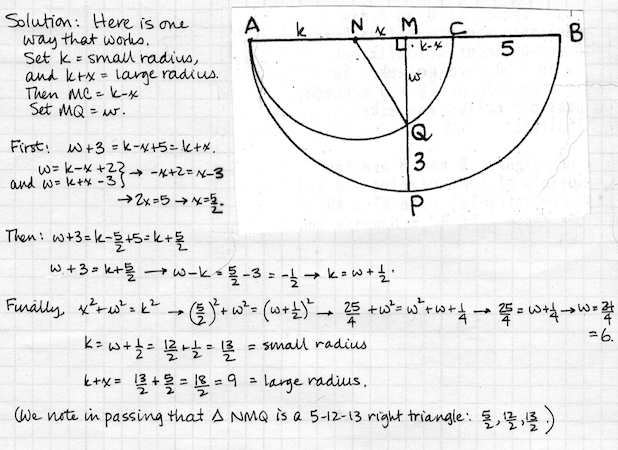 Solution: Here is one
way that works.
Set k = small radius,
and k+x = large radius.
Then MC = k-x
Set MQ = w.
A k N x M C B
k-x 5
w
Q
3
P
First: w+3 = k-x+5 = k+x.
w = k-x+2 } → -x+2 = x-3
and w = k+x-3
→ 2x=5 → x=5/2.
Then: w+3 = k-5/2+5 = k+5/2
w+3 = k+5/2 → w-k = 5/2-3 = -1/2 → k = w+1/2.
Finally, x²+w² = k² → (5/2)²+w² = (w+1/2)² → 25/4+w² = w²+w+1/4 → 25/4 = w+1/4 → w = 24/4
= 6.
k = w+1/2 = 12/2+1/2 = 13/2 = small radius
k+x = 13/2+5/2 = 18/2 = 9 = large radius.
(We note in passing that △ NMQ is a 5-12-13 right triangle: 5/2, 12/2, 13/2.)